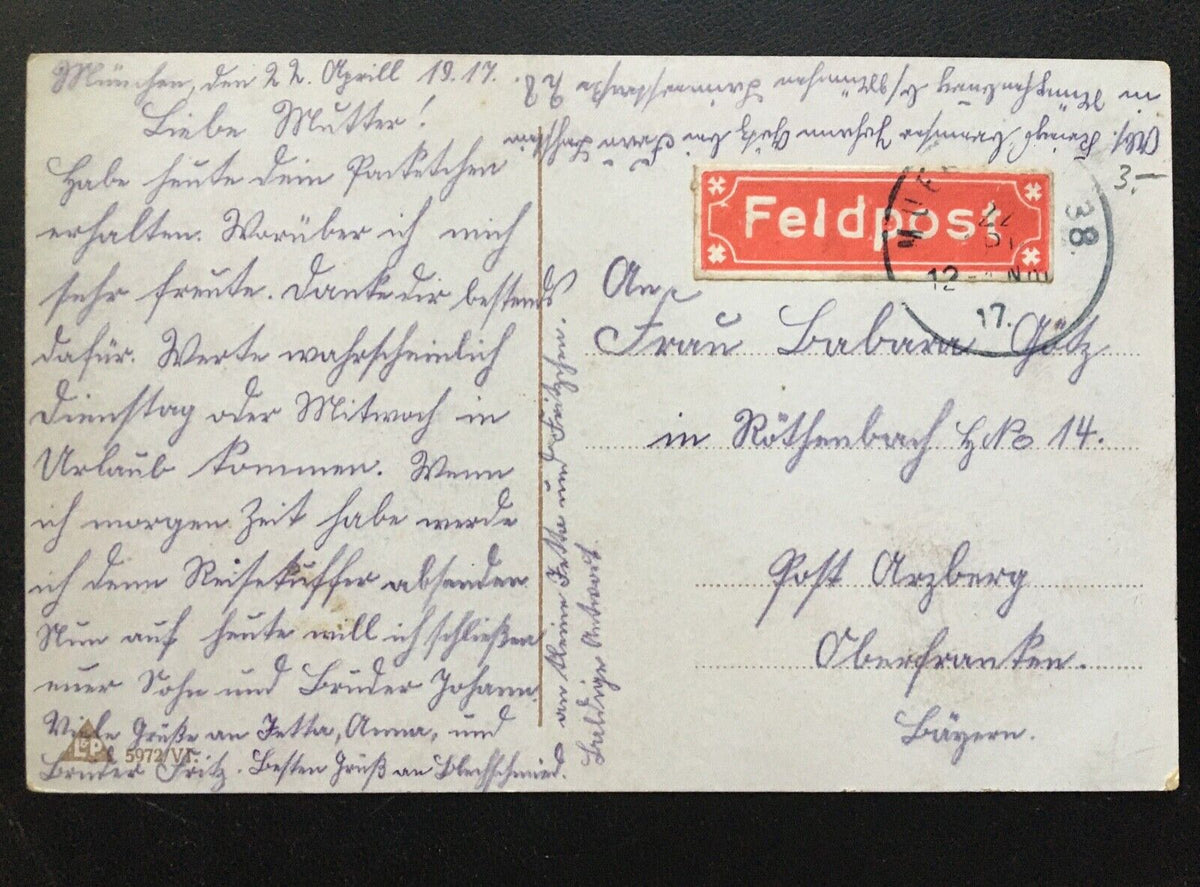 München, den 22. Aprill 1917.
Liebe Mutter!
Habe heute dein Packetchen
erhalten. Worüber ich mich
sehr freute. Danke dir bestends
dafür. Werte wahrscheinlich
Dienstag oder Mittwoch in
Urlaub kommen. Wenn
ich morgen Zeit habe werde
ich denn Reisekuffer absenden
Nun auf heute will ich schließen
euer Sohn und Bruder Johann.
Viele Grüße an Jetta, Anna, und
Bruder Fritz. Besten Gruß an Blechschmied.
an kleine Jetta und Fritzchen.
Baldige Antwort.
Abs.
in München
3.-
Feldpost
22
12
Nm
17.
38.
An
Frau Babara Götz
in Röthenbach HNo 14.
Post Arzberg
Oberfranken.
Bäyern.
L&P
5972/VI.